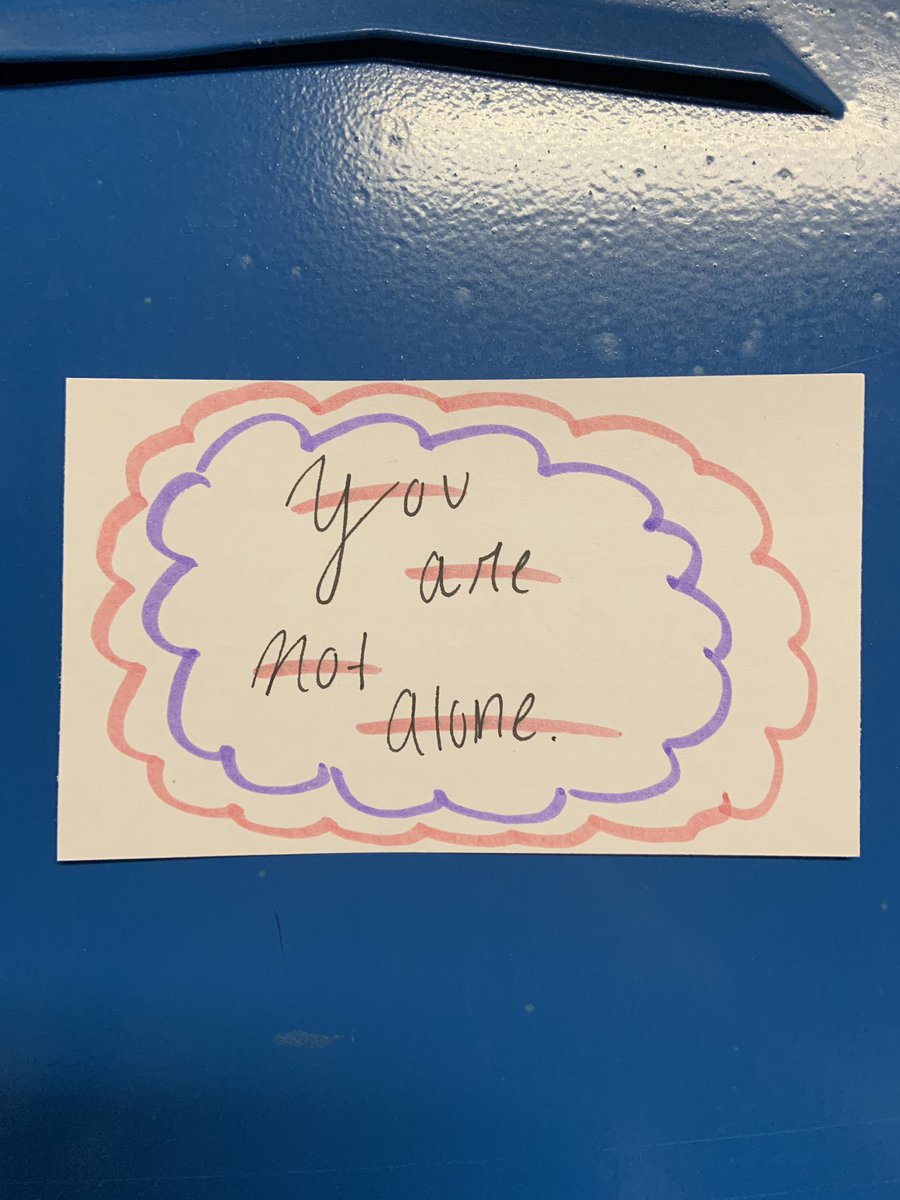 You
are
not
alone.